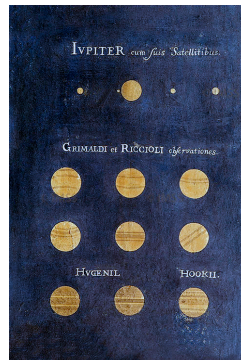 IVPITER cum suis Satellitibus.
GRIMALDI et RICCIOLI observationes.
HVGENII. HOOKII.